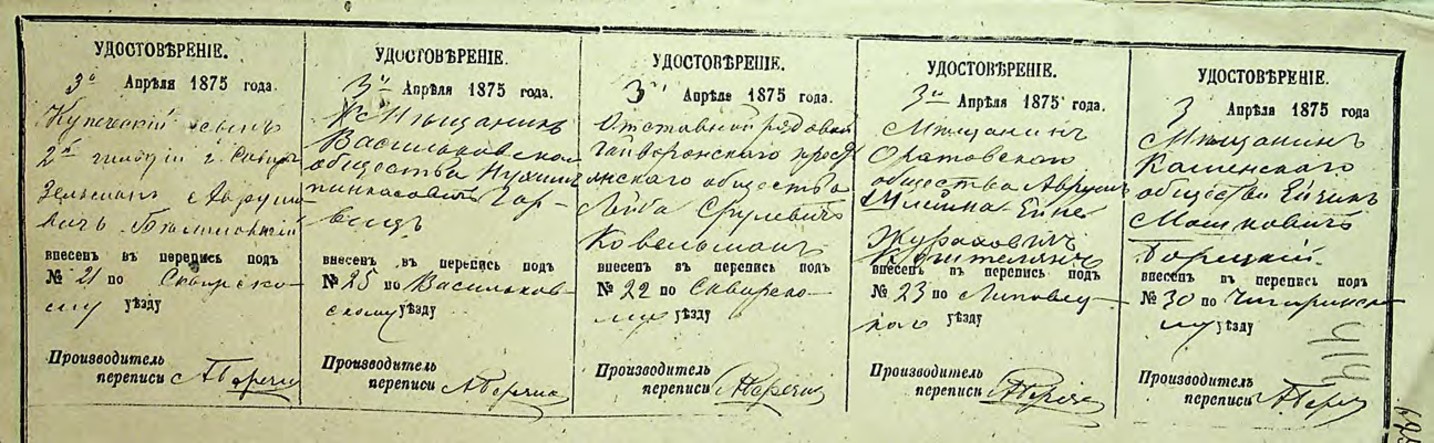 УДОСТОВѢРЕНІЕ.
3го Апрѣля 1875 года.
Купеческій сынъ
2й гильдіи г. Сквиры
Зельманъ Аврумо-
вичъ
внесенъ въ перепись подъ
№ 21 по Сквирско-
му уѣзду
Производитель
переписи
УДОСТОВѢРЕНІЕ.
3го Апрѣля 1875 года.
Мѣщанинъ
Васильковскаго
общества Нухимъ
Пинкасовичъ Гор-
вицъ
внесенъ въ перепись подъ
№ 25 по Васильков-
скому уѣзду
Производитель
переписи
УДОСТОВѢРЕНІЕ.
3го Апрѣля 1875 года.
Отставной рядовой
Гайворонскаго крестъ
янскаго общества
Лейба Срулевичъ
Ковельманъ
внесенъ въ перепись подъ
№ 22 по Сквирско-
му уѣзду
Производитель
переписи
УДОСТОВѢРЕНІЕ.
3го Апрѣля 1875 года.
Мѣщанинъ
Оратовского
общества Аврумъ
внесенъ въ перепись подъ
№ 23 по Липовец-
кого уѣзду
Производитель
переписи
УДОСТОВѢРЕНІЕ.
3 Апрѣля 1875 года
Мѣщанинъ
Каменскаго
общества Ейзикъ
Мошковичъ
внесенъ въ перепись подъ
№ 30 по Чигиринско-
му уѣзду
Производитель
переписи